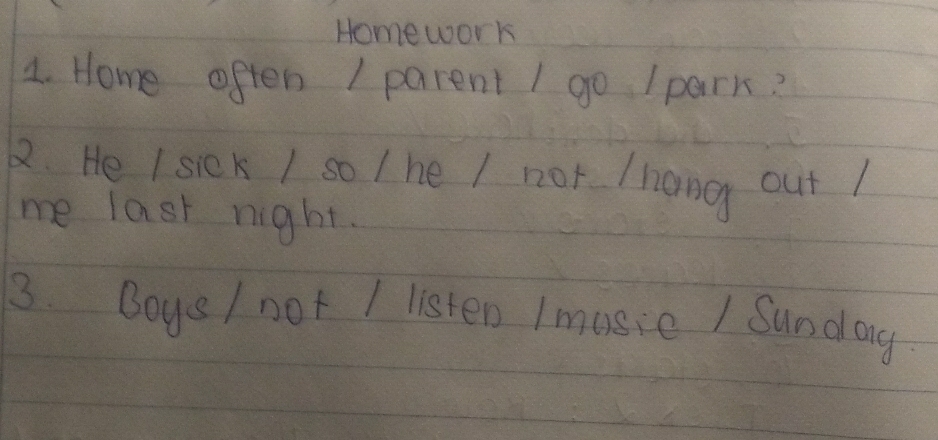 Homework
1. Home often / parent / go / park?
2. He / sick / so / he / not / hang out /
me last night.
3. Boys / not / listen / music / Sunday.